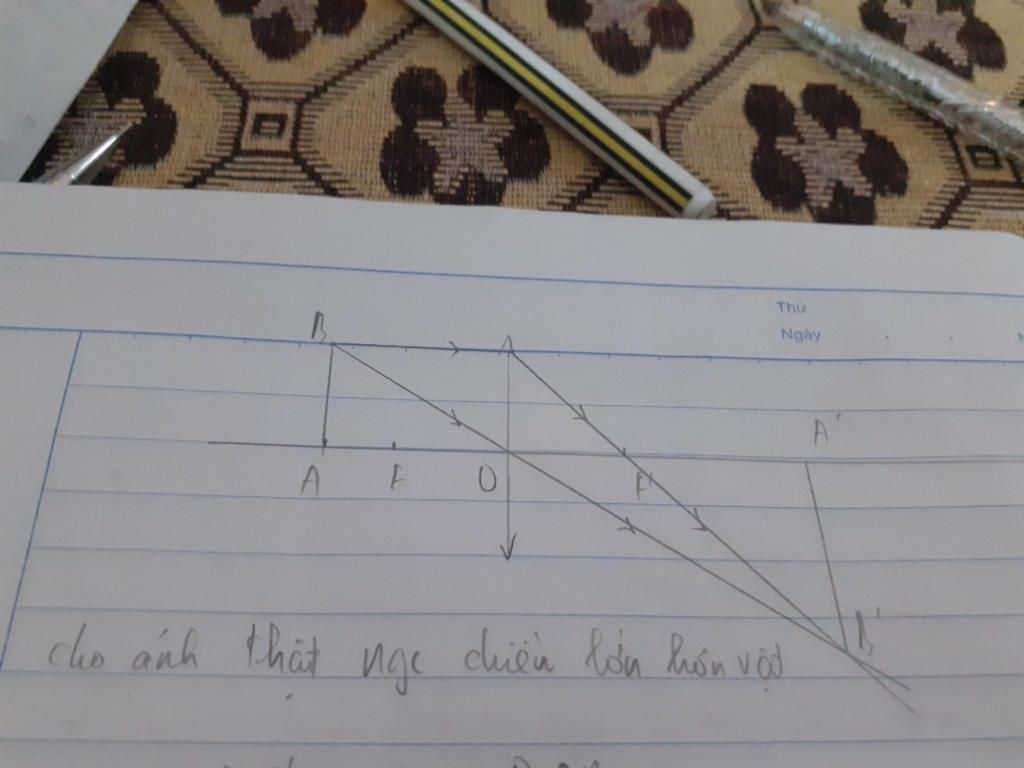 Thứ
Ngày
B
A'
A F O F'
B'
cho ảnh thật ngc chiều lớn hơn vật